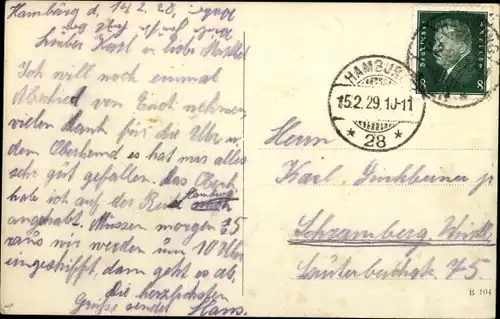 Hamburg d, 14.2.28,
Lieber Karl u liebe
Ich will noch einmal
Abschied von Euch nehmen,
vielen Dank für die Uhr u.
dem Oberhemd es hat mir alles
sehr gut gefallen. Das Oberh.
habe ich auf der Reise Hamburg
angehabt. Müssen morgen 5
raus wir werden um 10 Uhr
eingeschifft, dann geht es ab,
die herzlichsten
Grüße sendet Hans.
Deutsches Reich
8 8
HAMBURG
15.2.29.10-11
* 28 *
Herrn
Karl jr
Schramberg Württ.
75.
B 104